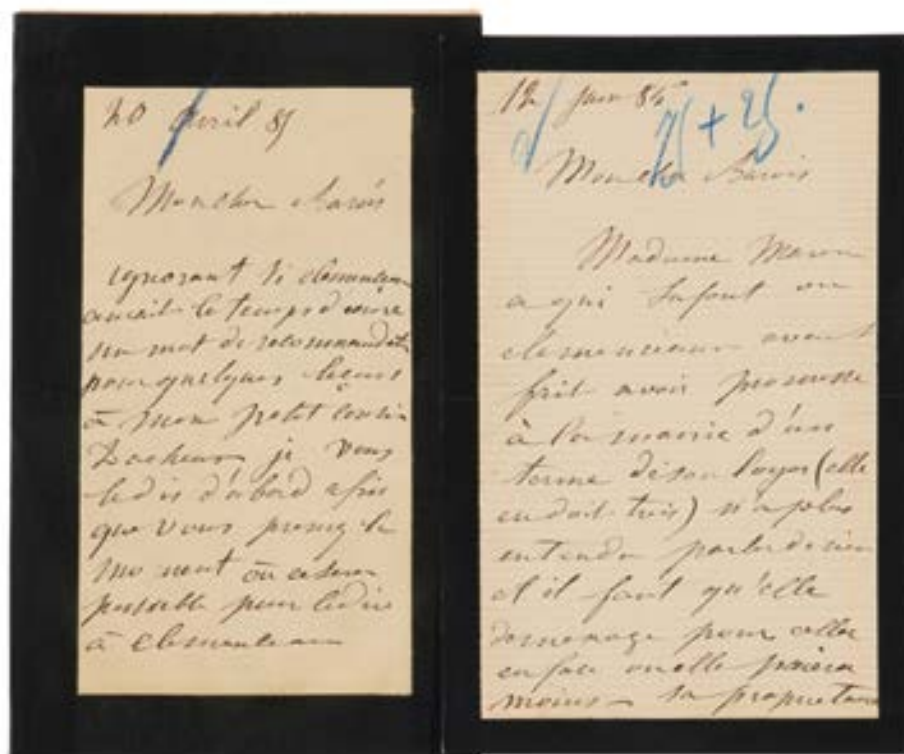 20 avril 85
Mon cher Barois
ignorant si clemenceau
aurait le temps d'ecrire
un mot de recommandation
pour quelques leçons
à mon petit cousin
je vous
le dis d'abord afin
que vous preniez le
moment où ce sera
possible pour le dire
à clemenceau
12 juin 85
75 + 25.
Mon cher Barois
Madame
a qui Lafont ou
clemenceau avait
fait avoir promesse
à la mairie d'un
terme de son loyer (elle
en doit trois) n'a plus
entendu parler de rien
et il faut qu'elle
demenage pour aller
en face ou elle paiera
moins - sa proprietaire